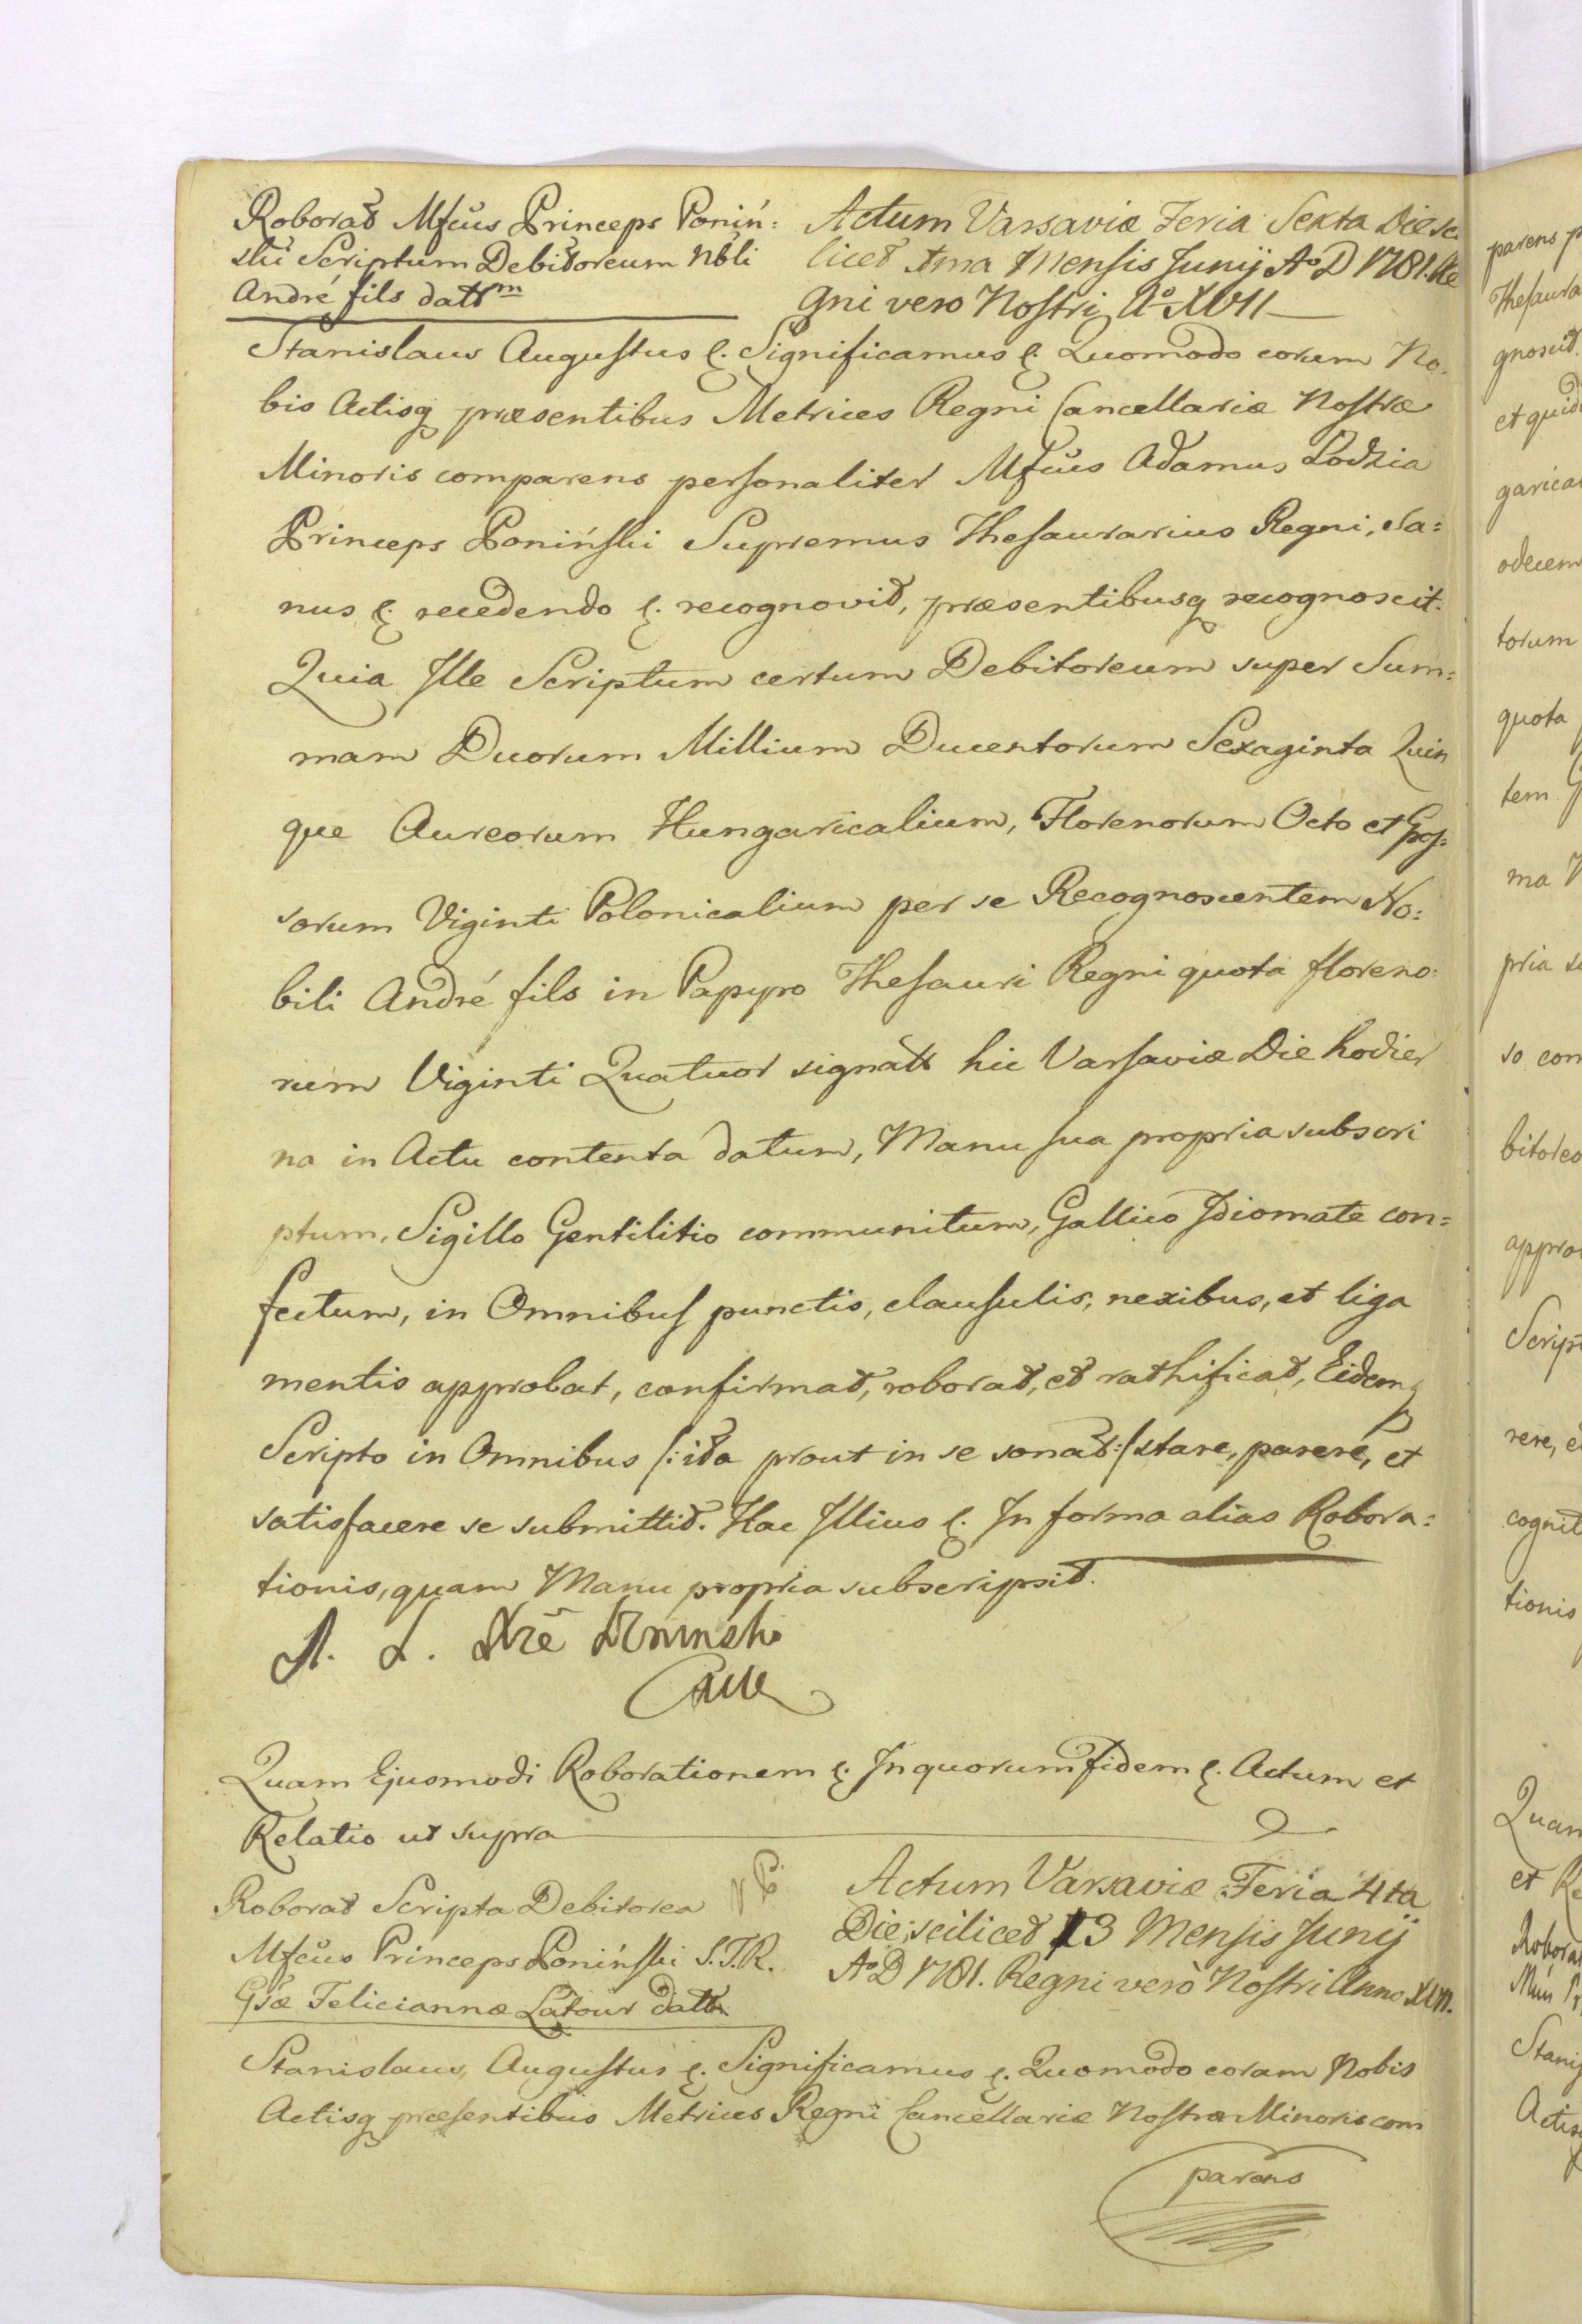 Roborat Mfcus Princeps Poniń:
ski Scriptum Debitoreum Nbli
André fils datt m
Actum Varsaviæ Feria Sexta Die sci
licet 1ma Mensis Junij Ao D 1781. Re
gni vero Nostri Ao XVII
Stanislaus Augustus &. Significamus &. Quomodo coram No.
bis Actisq præsentibus Metrices Regni Cancellariæ Nostræ
Minoris comparens personaliter Mfcus Adamus Lodzia
Princeps Poniński Supremus Thesaurarius Regni, sa=
nus &. recedendo &. recognovit, præsentibusq recognoscit.
Quia Ille Scriptum certum Debitoreum super Sum=
mam Duorum Millium Ducentorum Sexaginta Quin
que Aureorum Hungaricalium, Florenorum Octo et Gros=
sorum Viginti Polonicalium per se Recognoscentem No:
bili André fils in Papyro Thesauri Regni quota floreno:
rum Viginti Quatuor signatt hic Varsaviæ Die hodier
na in Actu contenta datum, Manu sua propria subscri
ptum, Sigillo Gentilitio communitum, Gallico Idiomate con=
fectum, in Omnibus punctis, clausulis, nexibus, et liga
mentis approbat, confirmat, roborat, et rathificat, Eidemq
Scripto in Omnibus /: ita prout in se sonat :/ stare, parere, et
satisfacere se submittit. Hac Illius &. In forma alias Robora=
tionis, quam Manu propria subscripsit.
A. L. Poninski
Quam Ejusmodi Roborationem &. In quorum fidem &. Actum et
Relatio ut supra
Roborat Scripta Debitorea
Mfcus Princeps Poniński S.T.R.
Gsæ Feliciannæ Latour datt
Actum Varsaviæ Feria 4ta
Die scilicet 13 Mensis Junij
Ao D 1781. Regni vero Nostri Anno XVII.
Stanislaus Augustus &. Significamus &. Quomodo coram Nobis
Actisq præsentibus Metrices Regni Cancellariæ Nostræ Minoris com
parens